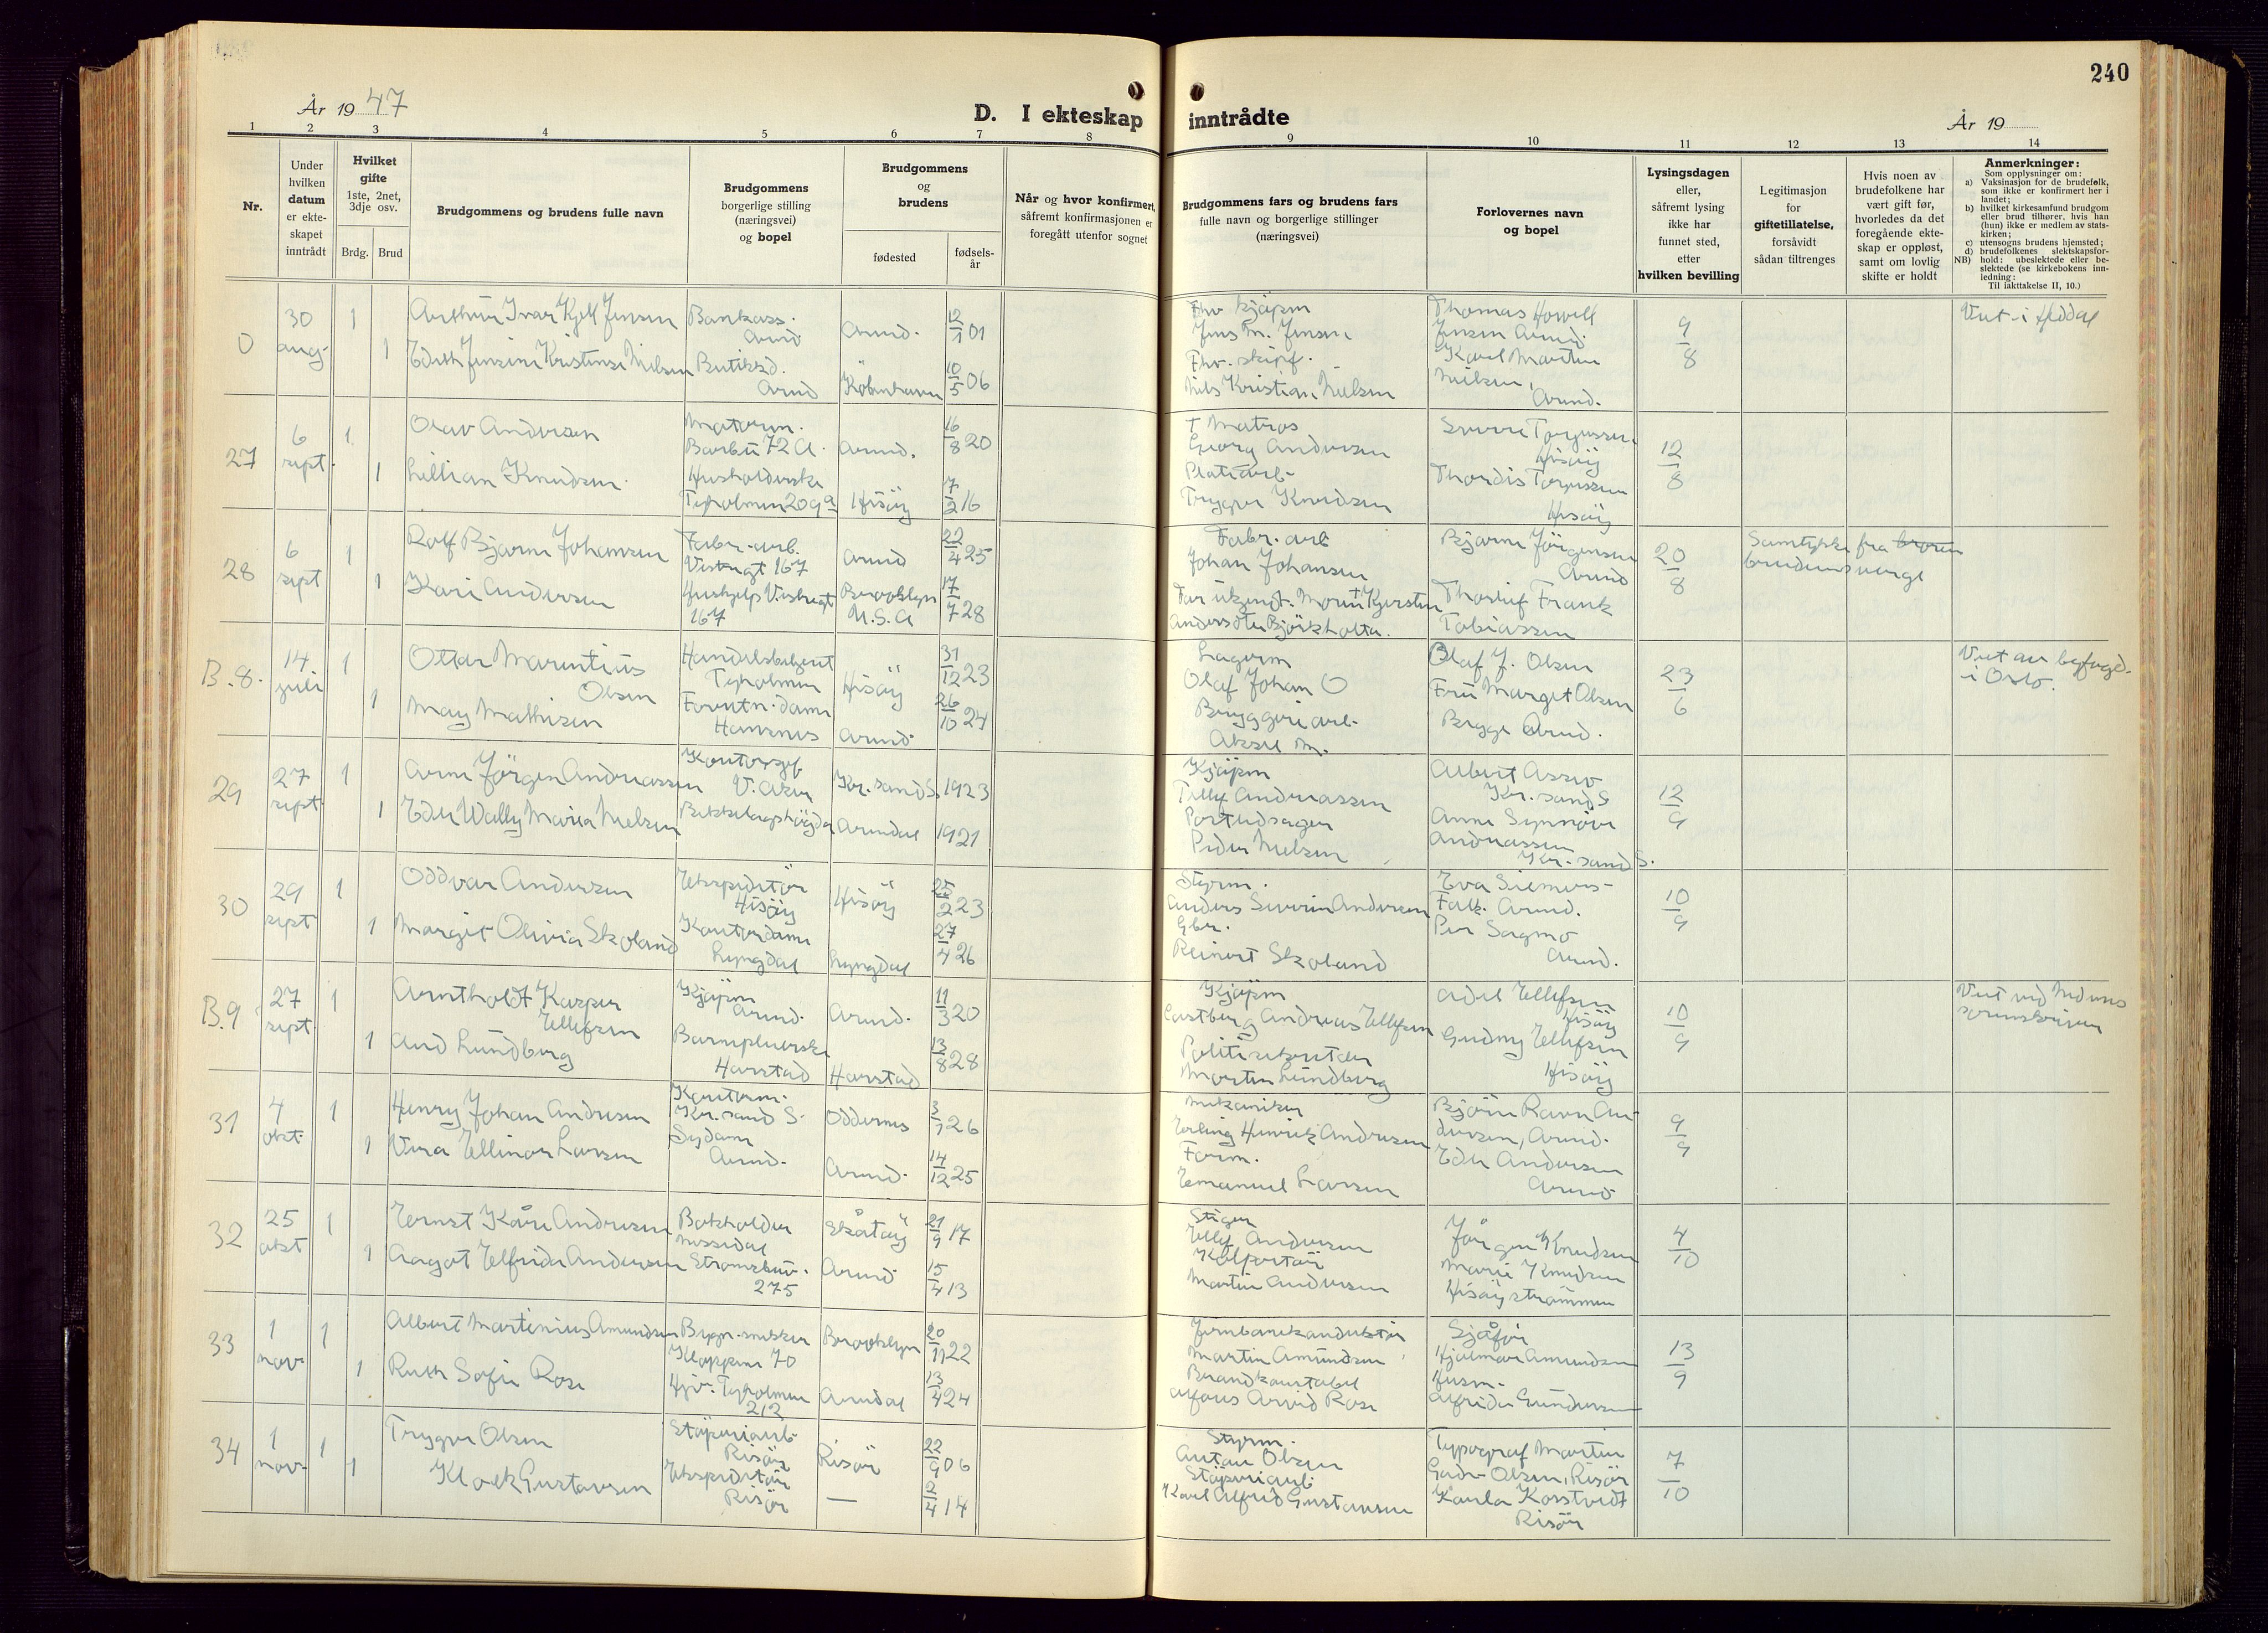 240
År 19 47
D. I ekteskap
inntrådte
År 19
1 2 3 4 5 6 7 8 9 10 11 12 13 14
Nr.
Under
hvilken
datum
er ekte-
skapet
inntrådt
Hvilket
gifte
1ste, 2net,
3dje osv.
Brdg. Brud
Brudgommens og brudens fulle navn
Brudgommens
borgerlige stilling
(næringsvei)
og bopel
Brudgommens
og
brudens
fødested
fødsels-
år
Når og hvor konfirmert,
såfremt konfirmasjonen er
foregått utenfor sognet
Brudgommens fars og brudens fars
fulle navn og borgerlige stillinger
(næringsvei)
Forlovernes navn
og bopel
Lysingsdagen
eller,
såfremt lysing
ikke har
funnet sted,
etter
hvilken bevilling
Legitimasjon
for
giftetillatelse,
forsåvidt
sådan tiltrenges
Hvis noen av
brudefolkene har
vært gift før,
hvorledes da det
foregående ekte-
skap er oppløst,
samt om lovlig
skifte er holdt
Anmerkninger:
Som opplysninger om:
a) Vaksinasjon for de brudefolk,
som ikke er konfirmert her i
landet;
b) hvilket kirkesamfund brudgom
eller brud tilhører, hvis han
(hun) ikke er medlem av stats-
kirken;
c) utensogns brudens hjemsted;
d) brudefolkenes slektskapsfor-
NB) hold: ubeslektede eller be-
slektede (se kirkebokens inn-
ledning:
Til iakttakelse II, 10.)
0 30 aug. 1 Arthur Ivar Kjell Jensen Bankass. Arend Arend. 12/1 01
1 Edith Jensine Kristense Nielsen Butikkd. Arend København 10/5 06
Fhv. kjøpm
Jens M. Jensen
Fhv. skipf.
Nils Kristian Nielsen
Thomas Howell
Jensen Arend.
Karl Martin
Nielsen,
Arend.
9/8
Viet i Heddal
27 6 sept. 1 Olav Andersen Motorm. Barbu 72 A. Arend. 16/8 20
1 Lillian Knudsen Husholderske Tyholmen 209a Hisøy 7/2 16
† Matros
Georg Andersen
Platearb.
Trygve Knudsen
Sverre Torjussen
Hisøy
Thordis Torjussen
Hisøy
12/8
28 6 sept 1 Rolf Bjarne Johansen Fabr.-arb. Vestregt 167 Arend 22/4 25
1 Kari Andersen Hushjelp Vestregt 167 Brooklyn U.S.A 17/7 28
Fabr. arb
Johan Johansen
Far ukjendt. Moren † Kjersten
Andersdtr Bjørkholta.
Bjarne Jørgensen
Arend
Thorleif Frank
Tobiassen
20/8
Samtykke fra broren
brudens verge
B.8. 14. juli 1 Ottar Marentius Olsen Handelsbetjent Tyholmen Hisøy 31/12 23
1 May Mathisen Forretn.dame Havsnes Arend 26/10 24
Lagerm
Olaf Johan O
Bryggeriarb.
Aksel M.
Olaf J. Olsen
Fru Margit Olsen
Begge Arend.
23/6
Viet av byfogd.
i Oslo.
29 27 sept 1 Arne Jørgen Andreassen Kontorsjef V. Aker Kr.sand S. 1923
1 Edle Wally Marie Nielsen Bekkelagshøgda Arendal 1921
Kjøpm
Tellef Andreassen
Postudsager
Peder Nielsen
Albert Assev
Kr.sand S
Anne Synnøve
Andreassen
Kr.sand S.
12/9
30 29 sept 1 Oddvar Andersen Ekspeditør Hisøy Hisøy 25/2 23
1 Margit Olivia Skoland Kontordame Lyngdal Lyngdal 27/4 26
Styrm.
Anders Severin Andersen
Gbr.
Reinert Skoland
Eva Siemers-
Falk. Arend.
Per Sagmo
Arend.
10/9
B.9. 27 sept. 1 Arntholdt Kasper Ellefsen Kjøpm Arend. Arend. 11/3 20
1 Aud Lundberg Barnepleierske Harstad Harstad 13/8 28
Kjøpm
Castberg Andreas Ellefsen
Politisekretær
Morten Lundberg
Adel Ellefsen
Hisøy
Gudny Ellefsen
Hisøy
10/9
Viet ved Nedenes
sorenskriver
31 4 okt. 1 Henry Johan Andresen Kontorm. Kr.sand S. Oddernes 3/1 26
1 Vera Ellinor Larsen Sydame Arend. Arend. 14/12 25
Mekaniker
Erling Henrik Andresen
Form.
Emanuel Larsen
Bjørn Ravn An-
dersen, Arend.
Edle Andersen
Arend
9/9
32 25 okt 1 Ernst Kåre Andresen Bokholder Nissedal Skåtøy 21/9 17
1 Aagot Elfrida Andersen Strømsbuv. 275 Arend 15/4 13
Stiger
Ellef Andersen
Kolportør
Martin Andersen
Jørgen Knudsen
Marie Knudsen
Hisøystrømmen
4/10
33 1 nov. 1 Albert Martinius Amundsen Bygn.-snekker Kloppene 70 Brooklyn 20/11 22
1 Ruth Sofie Rose Hjv. Tyholmen 212 Arendal 13/4 24
Jernbanekonduktør
Martin Amundsen
Brandkonstabel
Alfons Arvid Rose
Sjåfør
Hjalmar Amundsen
Husm.
Alfrida Gundersen
13/9
34 1 nov. 1 Trygve Olsen Støperiarb. Risør Risør 22/9 06
1 Kloek Gustavsen Ekspeditør Risør — 2/4 14
Styrm.
Anton Olsen
Støperiarb.
Karl Alfred Gustavsen
Typograf Martin
Olsen, Risør
Karla Korstvedt
Risør
7/10